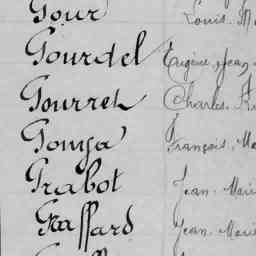 Gour Louis. M
Gourdel Eugène. Jean
Gourret Charles.
Gouya François. Ma
Grabot Jean. Marie
Graffard Jean. Marie